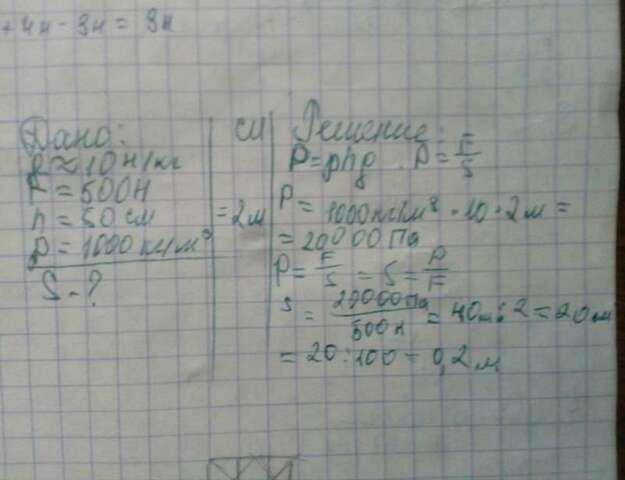 + 4н - 3н = 9н
Дано:
g ≈ 10 н/кг
F = 500Н
h = 50 см
ρ = 1000 кг/м³
S - ?
СИ
= 2м
Решение:
P = ρhg P = F/S
P = 1000 кг/м³ · 10 · 2 м =
= 20000 Па
P = F/S = S = P/F
S = 20000 Па/500 н = 40 м : 2 = 20 м
= 20 : 100 = 0,2 м